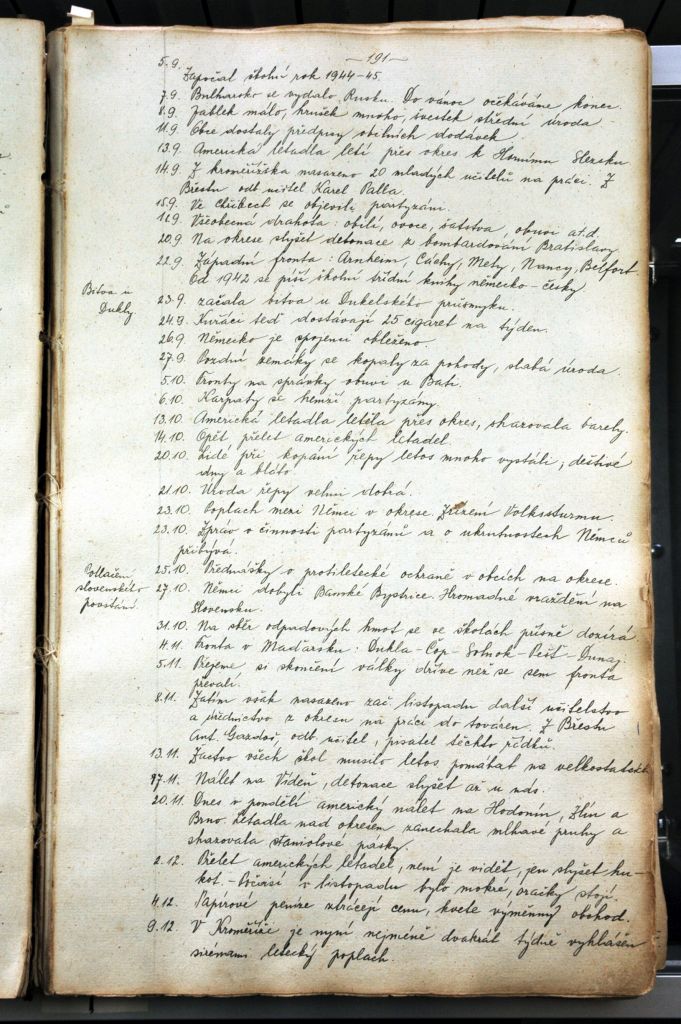 - 191 -
5.9. Započal školní rok 1944-45.
7.9. Bulharsko se vydalo Rusku. Do vánoc očekáváme konec.
8.9. Jablek málo, hrušek mnoho, švestek střední úroda.
11.9. Obce dostaly předpisy obilních dodávek.
13.9. Americká letadla letí přes okres k Hornímu Slezsku
14.9. Z kroměřížska nasazeno 20 mladých učitelů na práci. Z
Břestu odb. učitel Karel Palla.
15.9. Ve Chřibech se objevili partyzáni.
16.9. Všeobecná drahota: obilí, ovoce, šatstva, obuvi a t. d.
20.9. Na okrese slyšet detonace z bombardování Bratislavy.
22.9. Západní fronta: Arnheim, Cáchy, Mety, Nancy, Belfort
Od 1942 se píší školní třídní knihy německo-česky
Bitva u
Dukly
23.9. začala bitva u Dukelského průsmyku.
24.9. Kuřáci teď dostávají 25 cigaret na týden.
26.9. Německo je spojenci obklíčeno.
27.9. Pozdní zemáky se kopaly za pohody, slabá úroda.
5.10. Fronty na správky obuvi u Bati.
6.10. Karpaty se hemží partyzány.
13.10. Americká letadla letěla přes okres, shazovala barely.
14.10. Opět přelet amerických letadel.
20.10. Lidé při kopání řepy letos mnoho vystáli, deštivé
dny a bláto.
21.10. Úroda řepy velmi dobrá.
23.10. Poplach mezi Němci v okrese. Zřízení Volkssturmu.
23.10. Zpráv o činnosti partyzánů a o ukrutnostech Němců
přibývá.
Potlačení
slovenského
povstání.
25.10. Přednášky o protiletecké ochraně v obcích na okrese.
27.10. Němci dobyli Banské Bystrice. Hromadné vraždění na
Slovensku.
31.10. Na sběr odpadových hmot se ve školách přísně dozírá.
4.11. Fronta v Maďarsku: Dukla-Čop-Solnok-Pešť-Dunaj.
5.11. Přejeme si skončení války dříve než se sem fronta
převalí.
8.11. Zatím však nasazeno zač. listopadu další učitelstvo
a úřednictvo z okresu na práci do továren. Z Břestu
Ant. Gazdoš, odb. učitel, pisatel těchto řádků.
13.11. Žactvo všech škol musilo letos pomáhat na velkostatcích
17.11. Nálet na Vídeň, detonace slyšet až u nás.
20.11. Dnes v pondělí americký nálet na Hodonín, Zlín a
Brno. Letadla nad okresem zanechala mlhavé pruhy a
shazovala staniolové pásky.
2.12. Přelet amerických letadel, není je vidět, jen slyšet hu-
kot. - Počasí v listopadu bylo mokré, oračky stojí.
4.12. Papírové peníze ztrácejí cenu, kvete výměnný obchod.
9.12. V Kroměříži je nyní nejméně dvakrát týdně vyhlášen
sirénami letecký poplach.